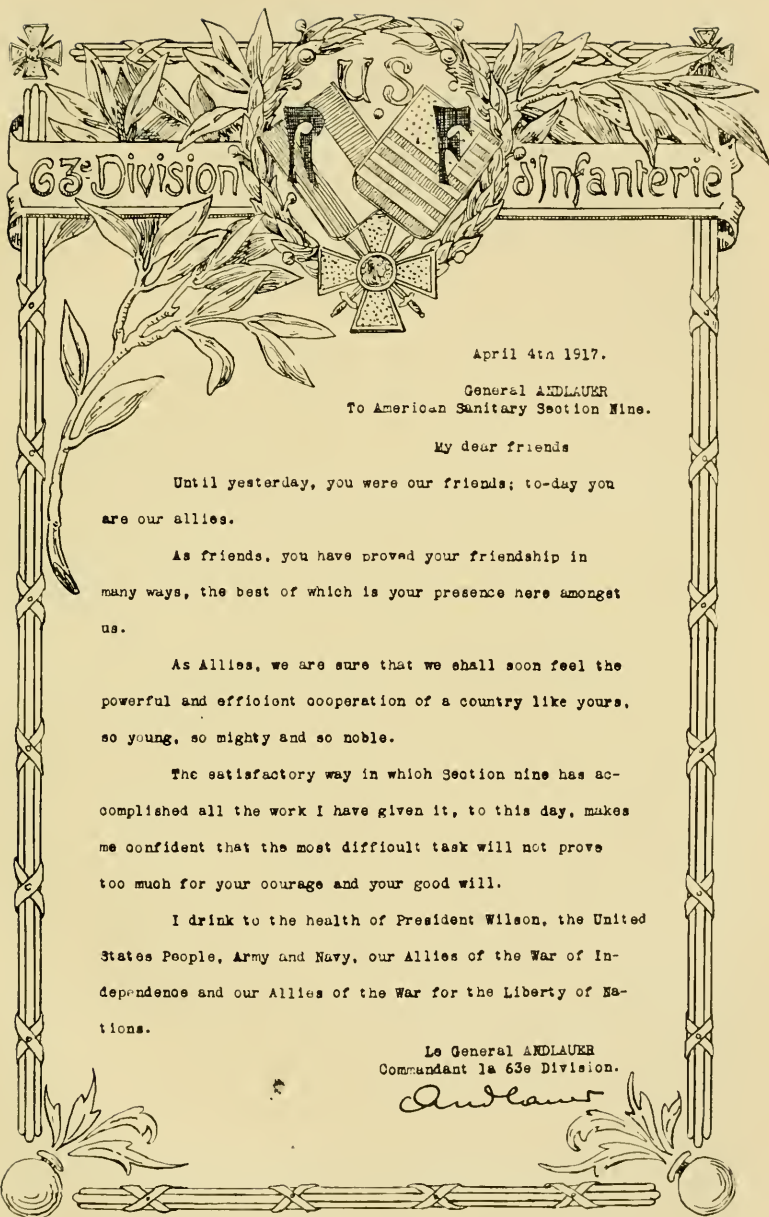 U S
R F
63e Division d'Infanterie
April 4th 1917.
General ANDLAUER
To American Sanitary Section Nine.
My dear friends
Until yesterday, you were our friends; to-day you
are our allies.
As friends, you have proved your friendship in
many ways, the best of which is your presence here amongst
us.
As Allies, we are sure that we shall soon feel the
powerful and efficient cooperation of a country like yours,
so young, so mighty and so noble.
The satisfactory way in which Section nine has ac-
complished all the work I have given it, to this day, makes
me confident that the most difficult task will not prove
too much for your courage and your good will.
I drink to the health of President Wilson, the United
States People, Army and Navy, our Allies of the War of In-
dependence and our Allies of the War for the Liberty of Na-
tions.
Le General ANDLAUER
Commandant la 63e Division.
Andlauer